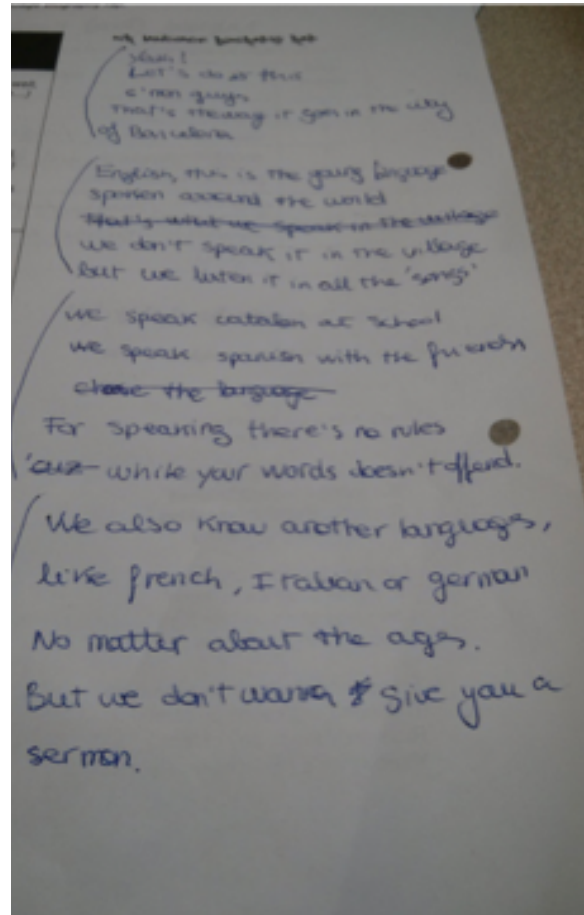 Yeah!
Let's do it this
c'mon guys
That's the way it goes in the city
of Barcelona
English, this is the young language
spoken around the world
That's what we speak in the village
we don't speak it in the village
but we listen it in all the 'songs'
we speak catalan at school
we speak spanish with the friends
chose the language
For speaking there's no rules
'cuz while your words doesn't offend.
We also know another languages,
like french, Italian or german
No matter about the ages.
But we don't wanna give you a
sermon.